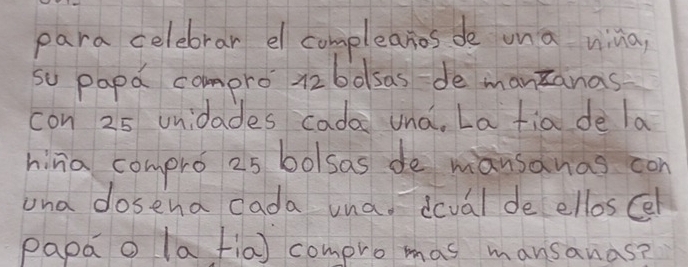 para celebrar el compleaños de una niña,
su papá compró 12 bolsas de manzanas
con 25 unidades cada uná. La tia de la
niña compró 25 bolsas de mansanas con
una dosena cada una. ¿cuál de ellos (el
papá o la tia) compro mas mansanas?